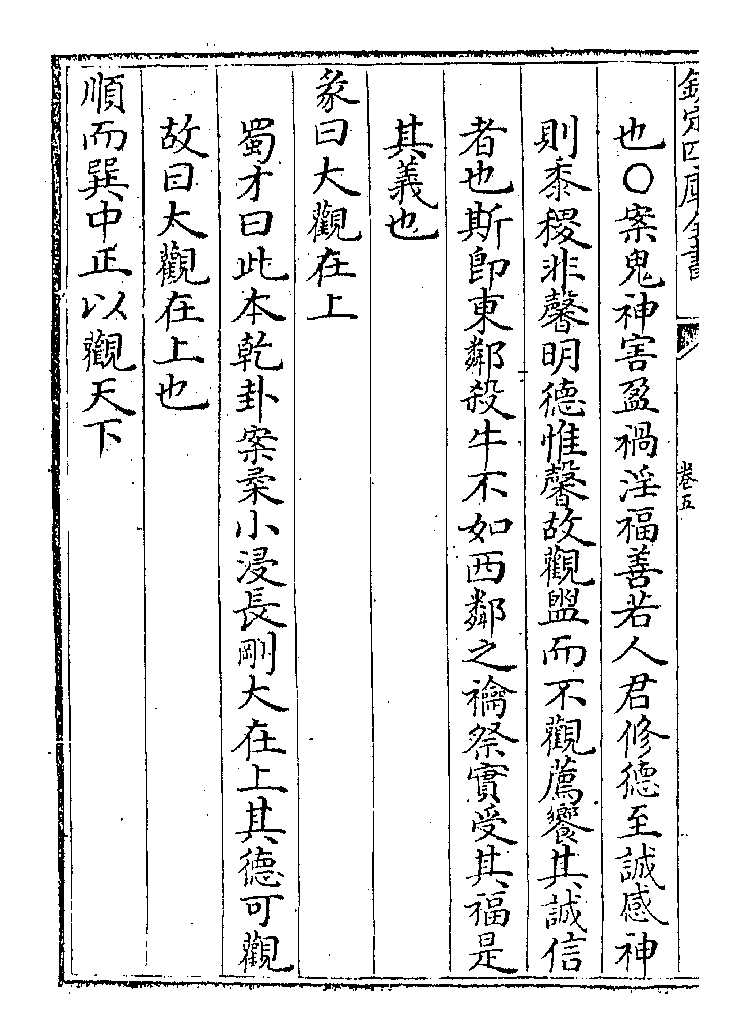 欽定四庫全書
卷五
也○案鬼神害盈禍淫福善若人君修德至誠感神
則黍稷非馨明德惟馨故觀盥而不觀薦饗其誠信
者也斯即東鄰殺牛不如西鄰之禴祭實受其福是
其義也
彖曰大觀在上
蜀才曰此本乾卦案柔小浸長剛大在上其德可觀
故曰大觀在上也
順而巽中正以觀天下